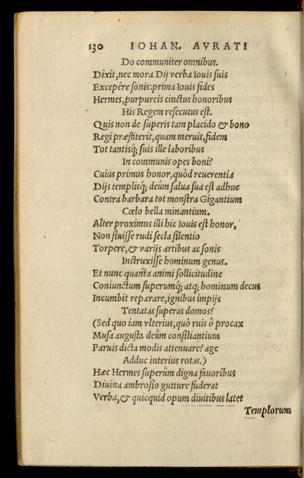 130 IOHAN. AVRATI
Do communiter omnibus.
Dixit, nec mora Dij verba Iouis suis
Excepére sonis: prima Iouis fides
Hermes, purpureis cinctus honoribus
His Regem resecutus est.
Quis non de superis tam placido & bono
Regi præstiterit, quam meruit, fidem
Tot tantisq́; suis ille laboribus
In communis opes boni?
Cuius primus honor, quòd reuerentia
Dijs templisq́; deûm salua sua est adhuc
Contra barbara tot monstra Gigantium
Cœlo bella minantium.
Alter proximus illi hic Iouis est honor,
Non siuisse rudi secla silentio
Torpere, & varijs artibus ac sonis
Instruxisse hominum genus.
Et nunc quanta animi sollicitudine
Coniunctum superumq́; atq; hominum decus
Incumbit reparare, ignibus impijs
Tentatas superas domos?
(Sed quo iam vlterius, quò ruis ô procax
Musa augusta deûm consiliantium
Paruis dicta modis attenuare? age
Adduc interius rotas.)
Hæc Hermes superûm digna fauoribus
Diuina ambrosio gutture fuderat
Verba, & quicquid opum diuitibus latet
Templorum